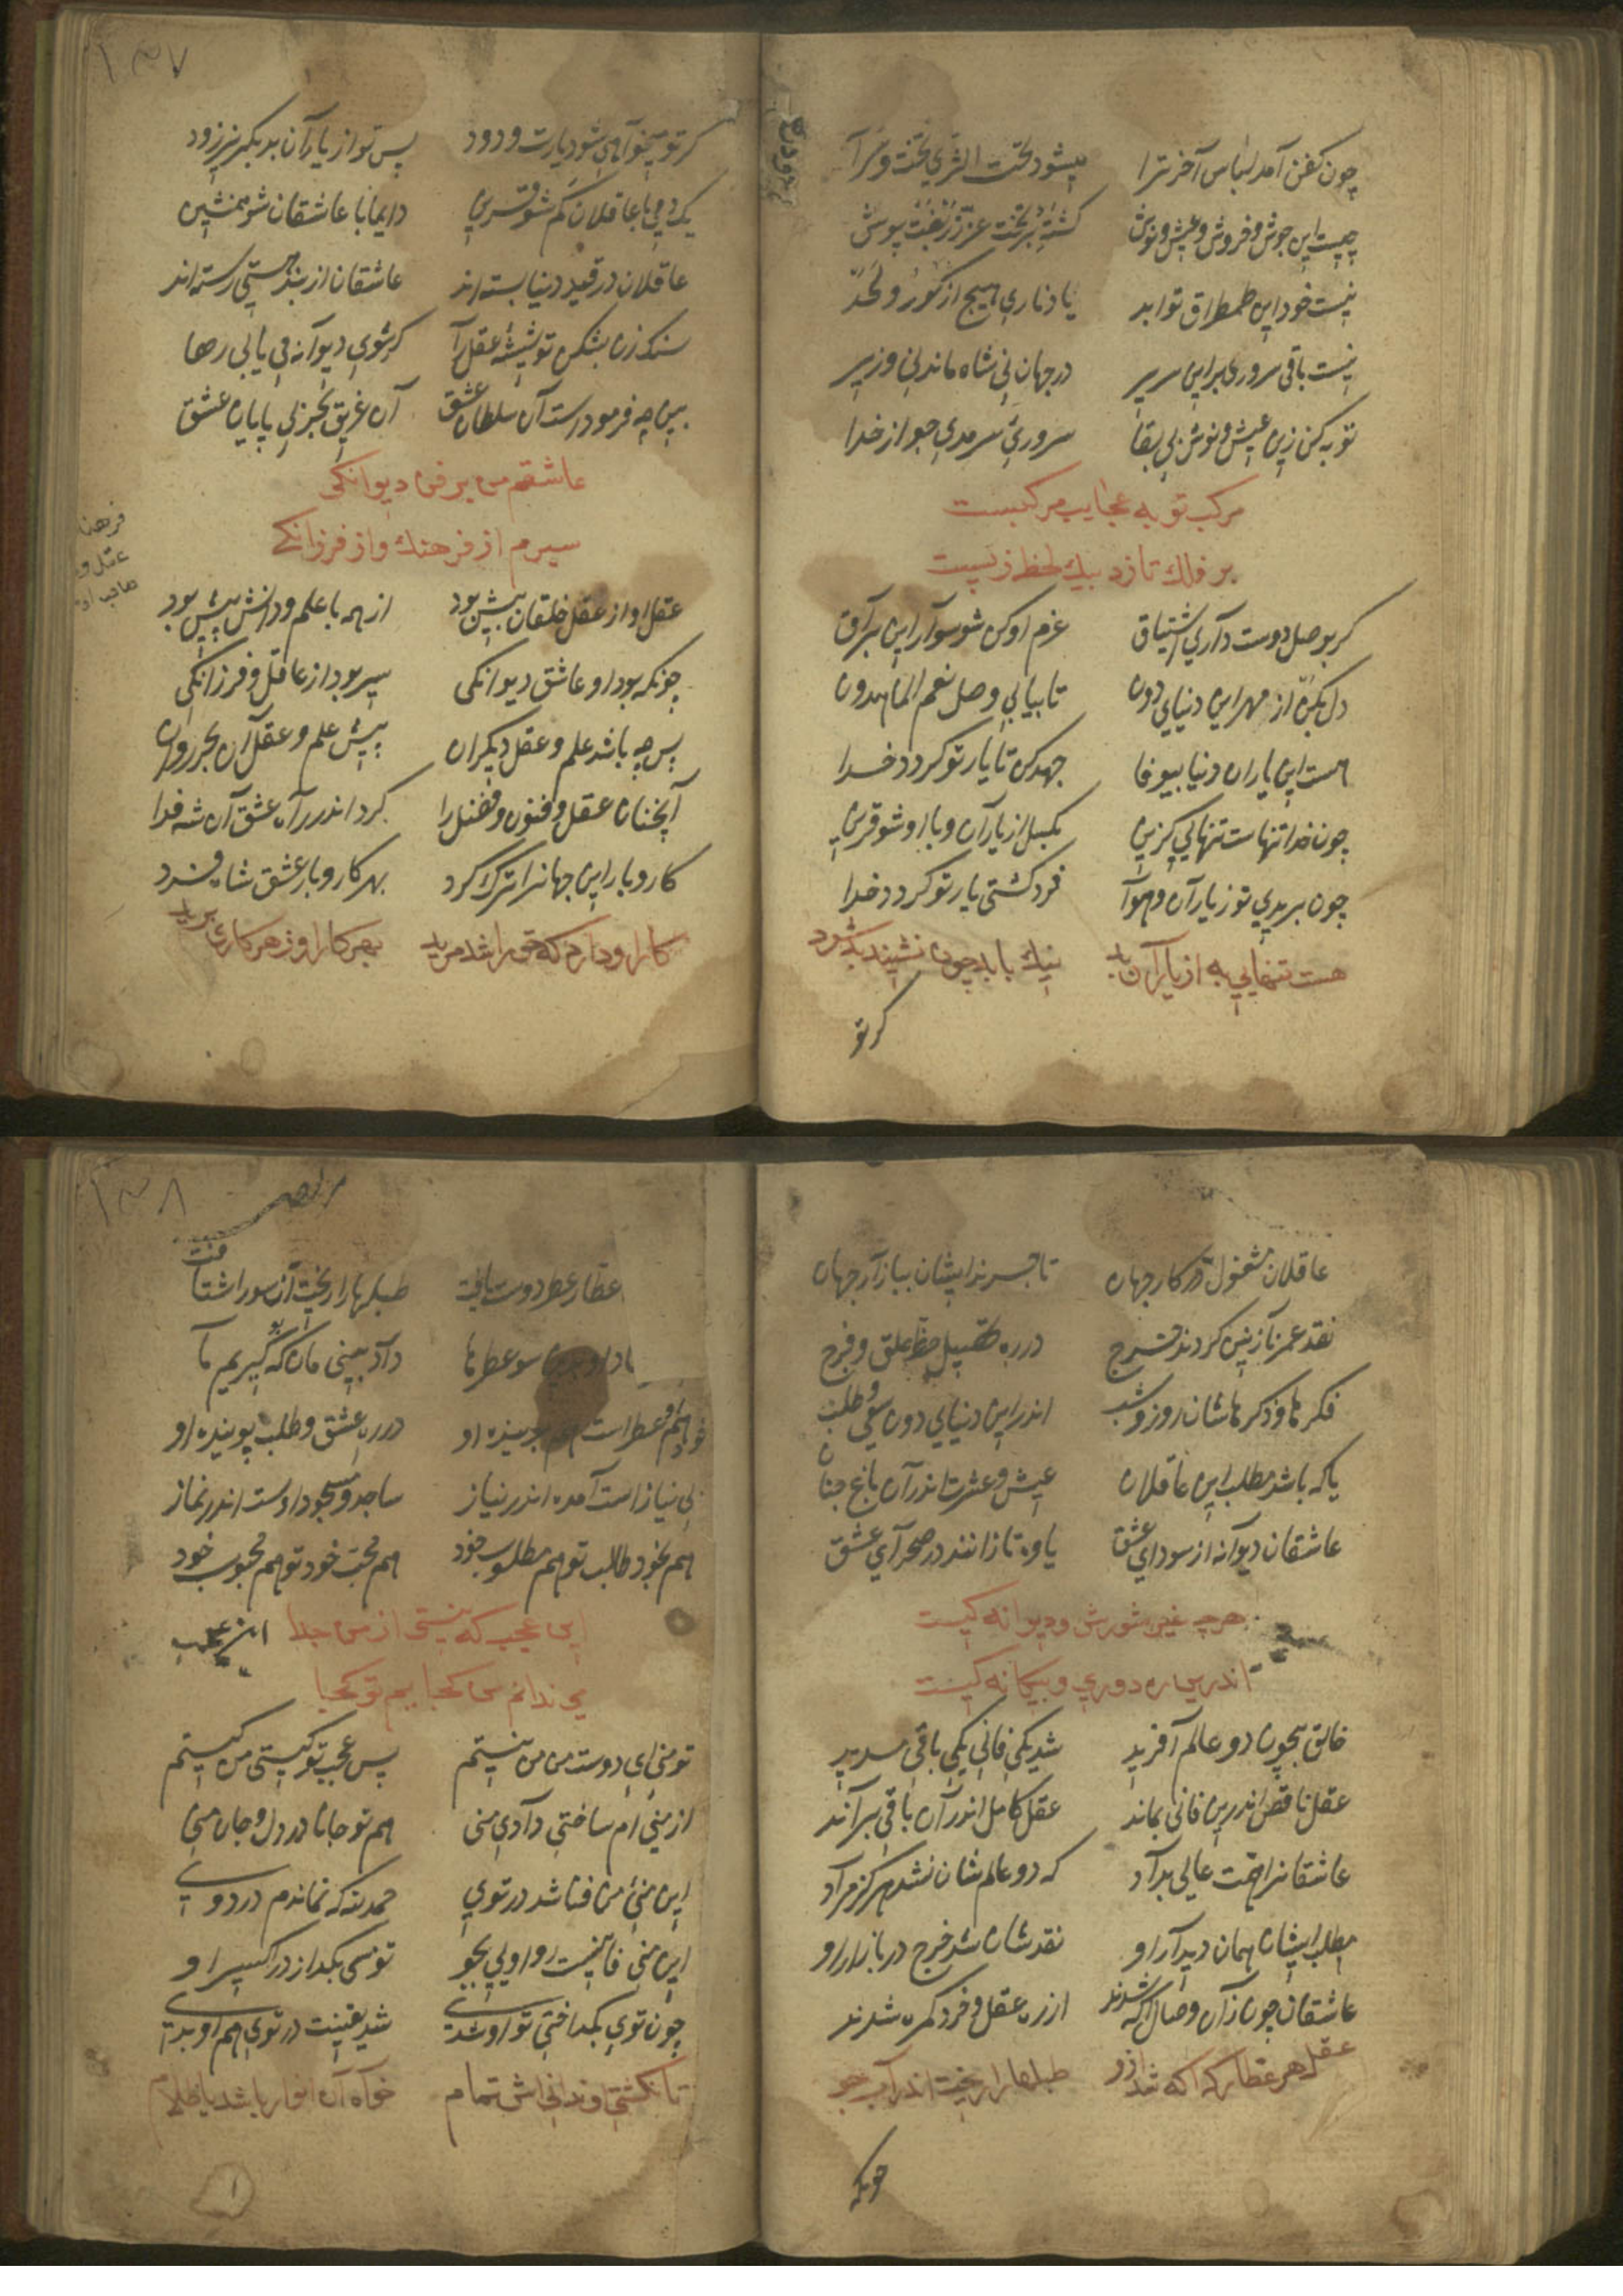 چون کفن آمد لباس آخر ترا میشود تحت الثری تخت و سرآ
چیست این جوش و فروش و عیش و نوش کشتهٔ بر تخت عزّ زربفت پوش
نیست خود این طمطراق تو ابد یاد ناری هیچ از کور و لحد
نیست باقی سروری بر این سریر در جهان نی شاه ماند نی وزیر
توبه کن زین عیش و نوش بی بقا سروریّ سرمدی جو از خدا
مرکب توبه عجایب مرکبست
بر فلک تازد بیک لحظه ز پست
کر بوصل دوست داری اشتیاق عزم او کن شو سوار این براق
دل بکن از مهر این دنیایی دون تا بیابی وصل نعم الماهدون
هست این یاران دنیا بیوفا جهد کن تا یار تو کردد خدا
چون خدا تنهاست تنهایی کزین بکسل از یاران و با او شو قرین
چون بریدی تو ز یاران و هوآ فرد کشتی یار تو کردد خدا
هست تنهایی به از یاران بد نیک با بد چون نشیند بد شود
کر تو
۱۳۷
کر تو میخواهی شود یارت ودود پس تو از یاران بد بکریز زود
یک دمی با عاقلان کم شو قرین دایما با عاشقان شو همنشین
عاقلان در قید دنیا بسته اند عاشقان از بند هستی رسته اند
سنک زن بشکن تو شیشهٔ عقل را کر شوی دیوانه می یابی رها
بین چه فرمودست آن سلطان عشق آن غریق بحر بی پایان عشق
عاشقم من بر فن دیوانکی
سیرم از فرهنک و از فرزانکی
عقل او از عقل خلقان بیش بود از همه با علم و دانش پیش بود
چونکه بود او عاشق دیوانکی سیر بود از عاقل و فرزانکی
پس چه باشد علم و عقل دیکران پیش علم و عقل آن بحر روان
آنچنان عقل و فنون و فضل را کرد اندر راه عشق آن شه فدا
کار و بار این جهانرا ترک کرد بهر کار و بار عشق شاه فرد
کار او دارد که حق را شد مرید بهر کار او ز هر کاری برید
عاقلان مشغول در کار جهان تاجرند ایشان ببازار جهان
نقد عمر نازنین کردند خرج در ره تحصیل حظ حلق و فرج
فکرها و ذکرهاشان روز و شب اندر این دنیایی دون سعی و طلب
یا که باشد مطلب این عاقلان عیش و عشرت اندر آن باغ جنان
عاشقان دیوانه از سودای عشق یاوه تازانند در صحرای عشق
هر چه غیر شورش و دیوانه کیست
اندرین ره دوری و بیکانه کیست
خالق بیچون دو عالم آفرید شد یکی فانی یکی باقی مدید
عقل ناقص اندرین فانی بماند عقل کامل اندر آن باقی براند
عاشقانرا همت عالی بداد که دو عالم شان نشد هرکز مراد
مطلب ایشان همان دیدار او نقدشان شد خرج در بازار او
عاشقان چون زان وصال آکه شدند از ره عقل و خرد کمره شدند
عقل هر عطار که آکه شد ازو طبلها را ریخت اندر آب جو
چونکه
۱۳۸
عطار عطر دوست یافت طبلها را ریخت آن سو را شتافت
داد بینی مان که کیریم ما
هم او عطر است هم بوینده او در ره عشق و طلب پوینده او
بی نیاز است آمده اندر نیاز ساجد و مسجود اوست اندر نماز
هم بخود طالب تو هم مطلوب خود هم محب خود تو هم محبوب خود
این عجب که نیستی از من جدا
می ندانم من کجایم تو کجا
تو منی ای دوست من من نیستم پس عجب تو کیستی من کیستم
از منی ام ساختی دادی منی هم تو جانا در دل و جان منی
این منیّ من فنا شد در تویی حمد لله که نماندم در دویی
این منی فانیست او اولی بجو تو مسی بکداز در اکسیر او
چون تویی بکداختی تو او شدی شد یقینت در تویی هم او بدی
تا نکشتی او ندانی اش تمام خواه آن انوار باشد یا ظلام